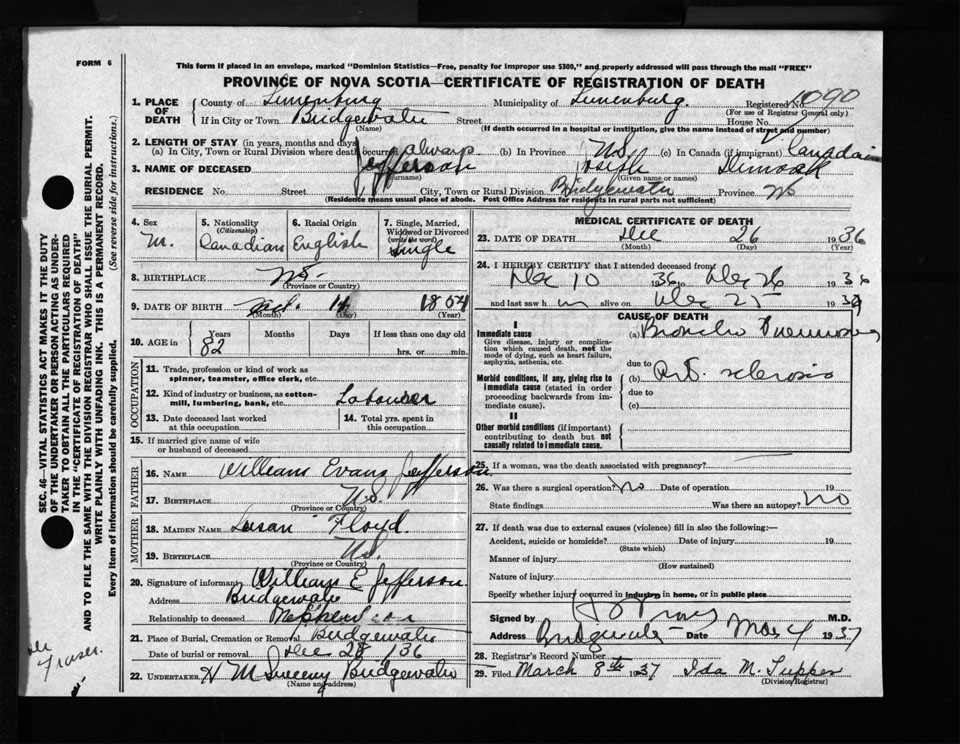 FORM 6
This form if placed in an envelope, marked "Dominion Statistics—Free, penalty for improper use $300," and properly addressed will pass through the mail "FREE"
PROVINCE OF NOVA SCOTIA—CERTIFICATE OF REGISTRATION OF DEATH
1. PLACE OF DEATH County of Lunenburg Municipality of Lunenburg Registered No. 1090
(For use of Registrar General only)
If in City or Town Bridgewater Street House No.
(Name) (If death occurred in a hospital or institution, give the name instead of street and number)
2. LENGTH OF STAY (in years, months and days)
(a) In City, Town or Rural Division where death occurred always (b) In Province N.S. (c) In Canada (if immigrant) Canadain
3. NAME OF DECEASED Jefferson Joseph Dimock
(Surname) (Given name or names)
RESIDENCE No. Street City, Town or Rural Division Bridgewater Province NS
(Residence means usual place of abode. Post Office Address for residents in rural parts not sufficient)
4. Sex M.
5. Nationality (Citizenship) Canadian
6. Racial Origin English
7. Single, Married, Widowed or Divorced (write the word) Single
8. BIRTHPLACE N.S.
(Province or Country)
9. DATE OF BIRTH Oct. 14 1854
(Month) (Day) (Year)
10. AGE in Years 82 Months Days If less than one day old hrs. or min.
OCCUPATION
11. Trade, profession or kind of work as spinner, teamster, office clerk, etc.
12. Kind of industry or business, as cotton-mill, lumbering, bank, etc. Labourer
13. Date deceased last worked at this occupation
14. Total yrs. spent in this occupation
15. If married give name of wife or husband of deceased
FATHER
16. NAME William Evans Jefferson
17. BIRTHPLACE N.S.
(Province or Country)
MOTHER
18. MAIDEN NAME Susan Floyd.
19. BIRTHPLACE N.S.
(Province or Country)
20. Signature of informant William E Jefferson.
Address Bridgewater
Relationship to deceased Nephew
21. Place of Burial, Cremation or Removal Bridgewater
Date of burial or removal Dec 28 136
22. UNDERTAKER H M Sweeny Bridgewater
(Name and address)
MEDICAL CERTIFICATE OF DEATH
23. DATE OF DEATH Dec 26 1936
(Month) (Day) (Year)
24. I HEREBY CERTIFY that I attended deceased from
Dec 10 36 to Dec 26 1936
and last saw him alive on Dec 25 193
CAUSE OF DEATH
I
Immediate cause
Give disease, injury or complication which caused death, not the mode of dying, such as heart failure, asphyxia, asthenia, etc.
(a) Broncho Pneumonia
due to
Morbid conditions, if any, giving rise to immediate cause (stated in order proceeding backwards from immediate cause).
(b) Art. sclerosis
due to
(c)
II
Other morbid conditions (if important) contributing to death but not causally related to immediate cause.
25. If a woman, was the death associated with pregnancy?
26. Was there a surgical operation? No Date of operation 19
State findings Was there an autopsy? No
27. If death was due to external causes (violence) fill in also the following:—
Accident, suicide or homicide? Date of injury 19
(State which)
Manner of injury
(How sustained)
Nature of injury
Specify whether injury occurred in industry, in home, or in public place
Signed by M.D.
Address Bridgewater Date Mar 4 1937
28. Registrar's Record Number
29. Filed March 8th 1937 Ida M. Tupper
(Division Registrar)
SEC. 46—VITAL STATISTICS ACT MAKES IT THE DUTY
OF THE UNDERTAKER OR PERSON ACTING AS UNDER-
TAKER TO OBTAIN ALL THE PARTICULARS REQUIRED
IN THE "CERTIFICATE OF REGISTRATION OF DEATH"
AND TO FILE THE SAME WITH THE DIVISION REGISTRAR WHO SHALL ISSUE THE BURIAL PERMIT.
WRITE PLAINLY WITH UNFADING INK. THIS IS A PERMANENT RECORD.
Every item of Information should be carefully supplied. (See reverse side for instructions.)
Fraser.